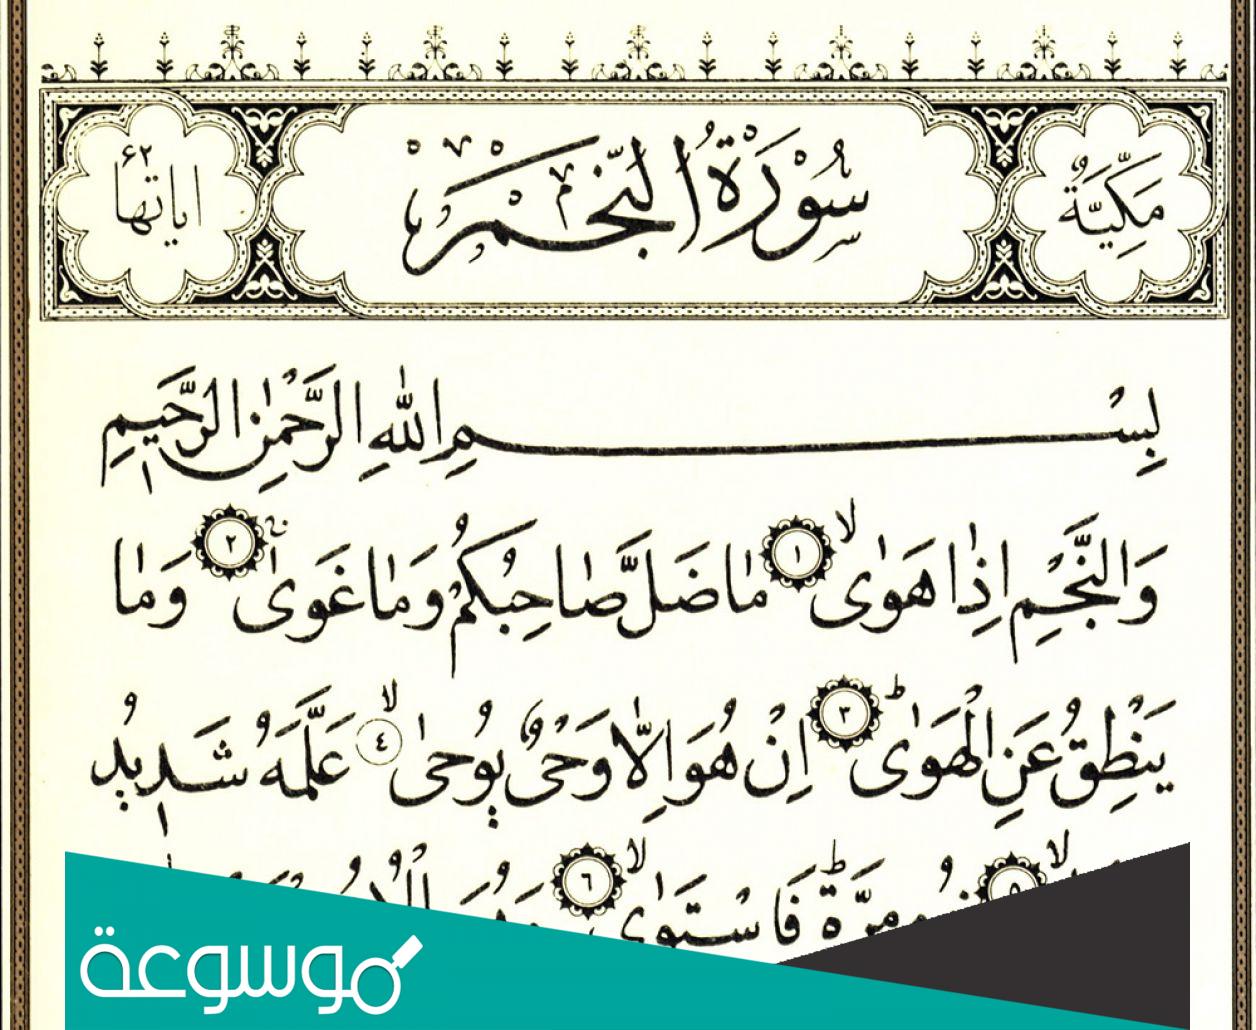 مَكِّيَّةٌ سُوْرَةُ النَّجْمِ اٰيَاتُهَا ۶۲
بِسْمِ اللّٰهِ الرَّحْمٰنِ الرَّحِيْمِ
وَالنَّجْمِ اِذَا هَوٰىۙ ١ مَا ضَلَّ صَاحِبُكُمْ وَمَا غَوٰىۚ ٢ وَمَا
يَنْطِقُ عَنِ الْهَوٰىؕ ٣ اِنْ هُوَ اِلَّا وَحْيٌ يُوْحٰىۙ ٤ عَلَّمَهُ شَدِيْدُ
٥ مِرَّةٍؕ فَاسْتَوٰىۙ ٦
موسوعة